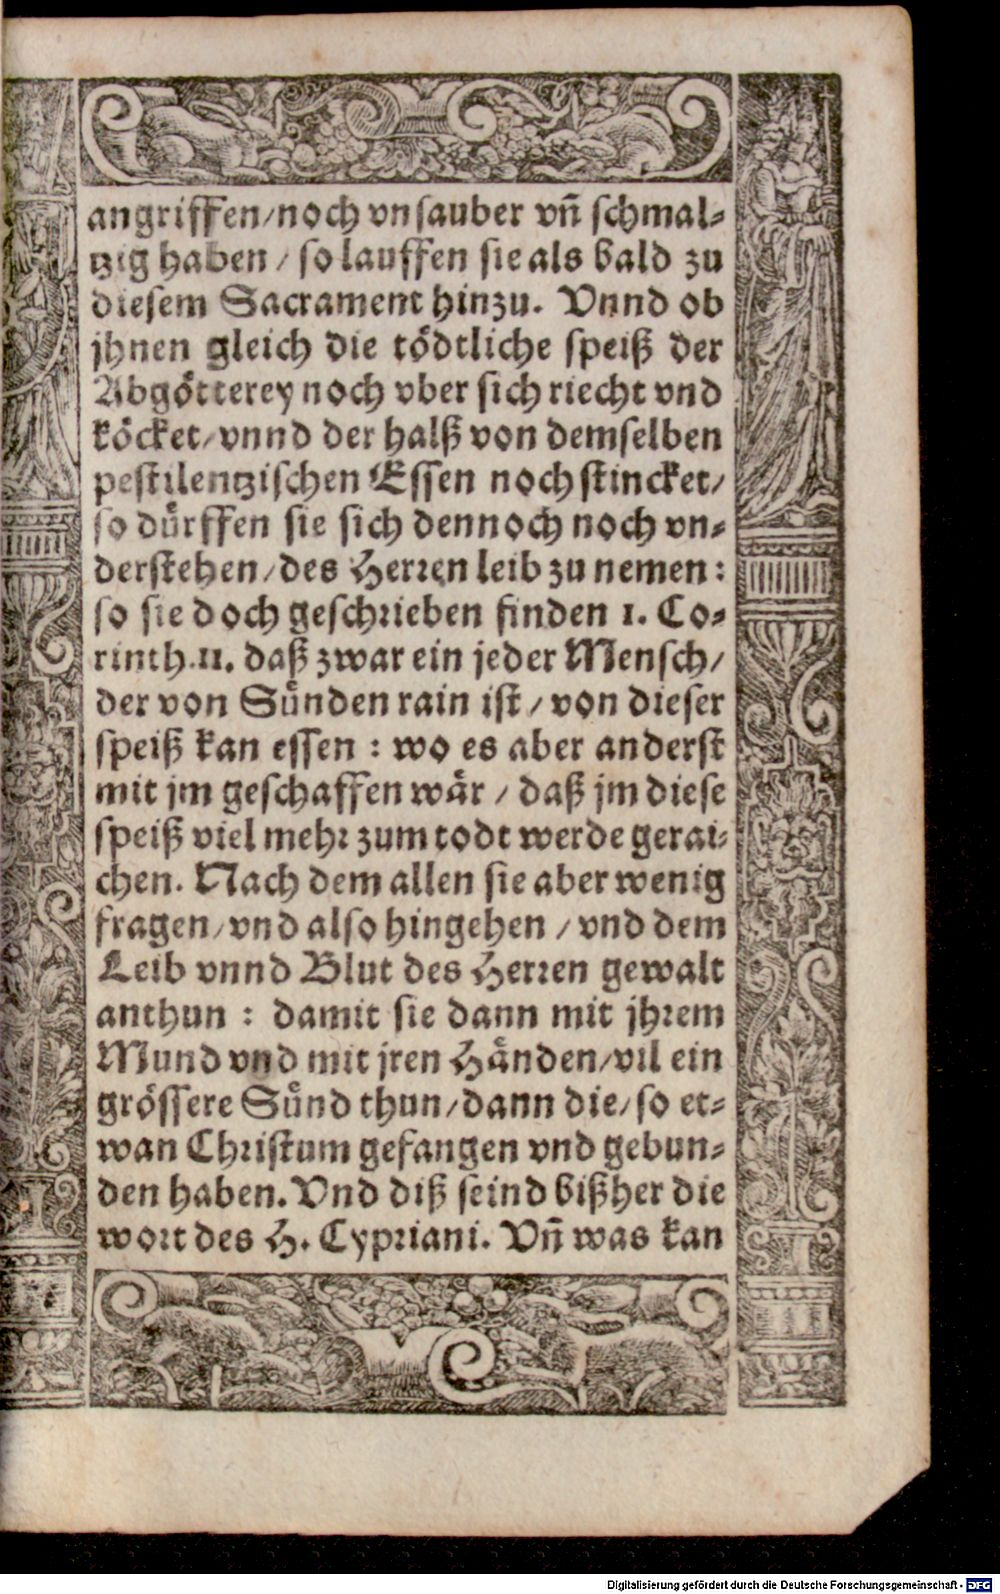 angriffen/noch vnsauber vn̄ schmal⸗
tzig haben / so lauffen sie als bald zu
diesem Sacrament hinzu. Vnnd ob
jhnen gleich die tödtliche speiß der
Abgötterey noch vber sich riecht vnd
köcket/vnnd der halß von demselben
pestilentzischen Essen noch stincket/
so dürffen sie sich dennoch noch vn⸗
derstehen/des Herren leib zu nemen:
so sie doch geschrieben finden 1. Co⸗
rinth.11. daß zwar ein jeder Mensch/
der von Sünden rain ist / von dieser
speiß kan essen : wo es aber anderst
mit jm geschaffen wär / daß jm diese
speiß viel mehr zum todt werde gerai⸗
chen. Nach dem allen sie aber wenig
fragen/vnd also hingehen / vnd dem
Leib vnnd Blut des Herren gewalt
anthun : damit sie dann mit jhrem
Mund vnd mit jren Händen/vil ein
grössere Sünd thun/dann die/so et⸗
wan Christum gefangen vnd gebun⸗
den haben. Vnd diß seind bißher die
wort des H. Cypriani. Vn̄ was kan
Digitalisierung gefördert durch die Deutsche Forschungsgemeinschaft - DFG